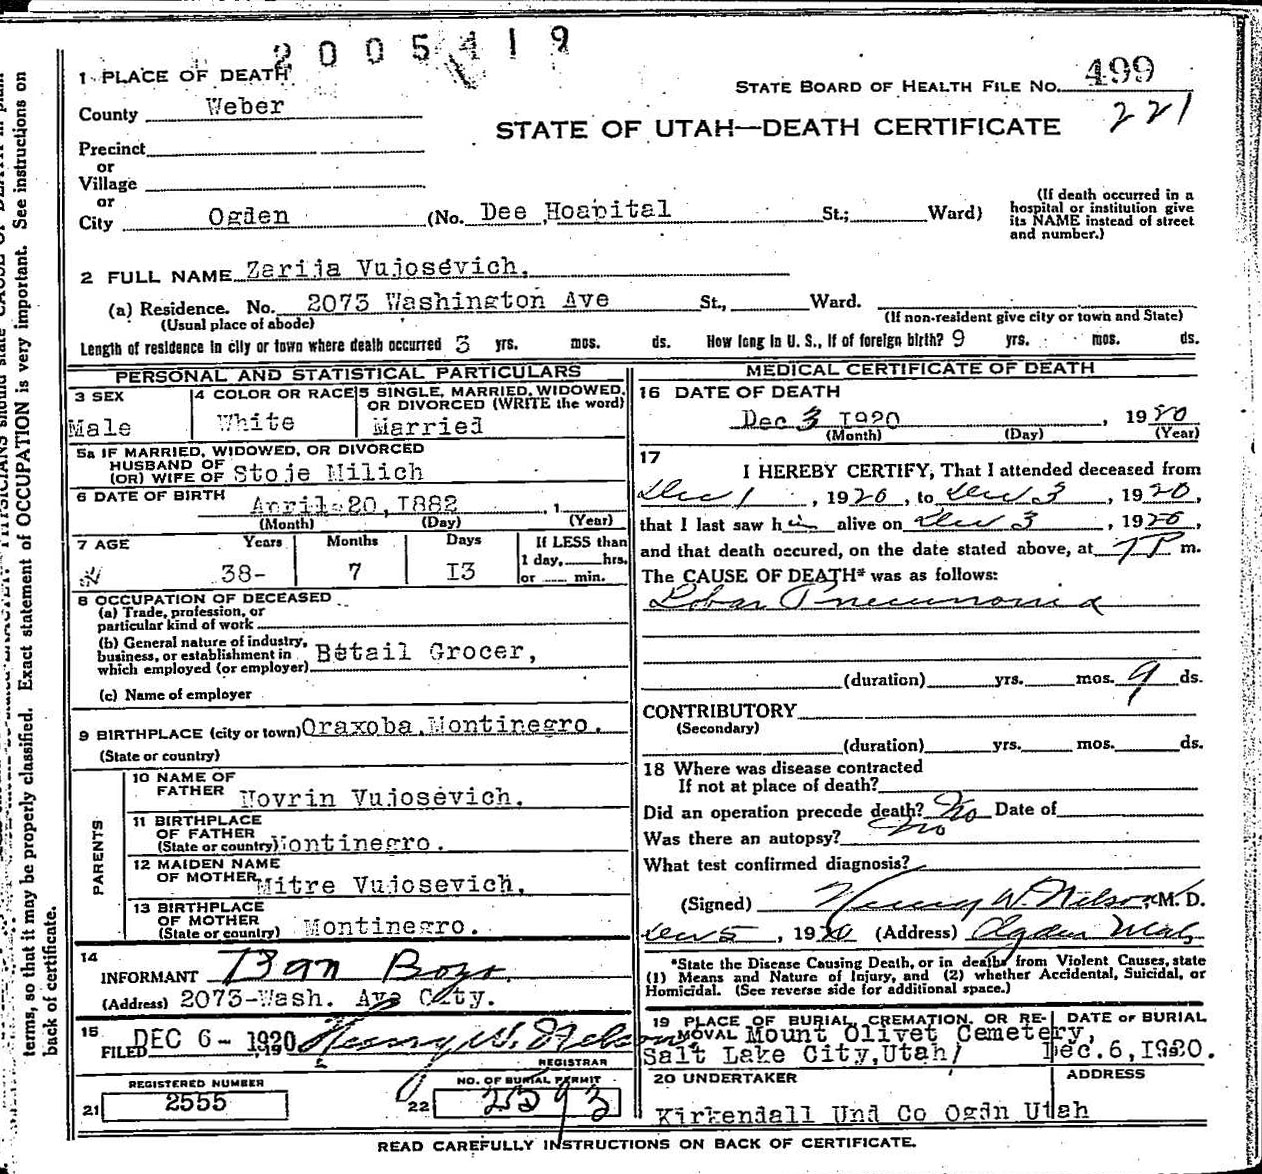 2005419
1 PLACE OF DEATH
STATE BOARD OF HEALTH FILE No. 499
County Weber
221
STATE OF UTAH—DEATH CERTIFICATE
Precinct
or
Village
or
City Ogden (No. Dee Hospital St.; Ward)
(If death occurred in a
hospital or institution give
its NAME instead of street
and number.)
2 FULL NAME Zarija Vujosevich.
(a) Residence. No. 2073 Washington Ave St., Ward.
(Usual place of abode)
(If non-resident give city or town and State)
Length of residence in city or town where death occurred 3 yrs. mos. ds. How long in U. S., if of foreign birth? 9 yrs. mos. ds.
PERSONAL AND STATISTICAL PARTICULARS
3 SEX
Male
4 COLOR OR RACE
White
5 SINGLE, MARRIED, WIDOWED,
OR DIVORCED (WRITE the word)
Married
5a IF MARRIED, WIDOWED, OR DIVORCED
HUSBAND OF
(OR) WIFE OF Stoje Milich
6 DATE OF BIRTH
April-20,1882 , 1
(Month) (Day) (Year)
7 AGE Years Months Days
38- 7 I3
If LESS than
1 day, hrs.
or min.
8 OCCUPATION OF DECEASED
(a) Trade, profession, or
particular kind of work
(b) General nature of industry,
business, or establishment in
which employed (or employer) Betail Grocer,
(c) Name of employer
9 BIRTHPLACE (city or town) Oraxoba, Montinegro.
(State or country)
PARENTS
10 NAME OF
FATHER Novrin Vujosevich.
11 BIRTHPLACE
OF FATHER
(State or country) Montinegro.
12 MAIDEN NAME
OF MOTHER Mitre Vujosevich,
13 BIRTHPLACE
OF MOTHER
(State or country) Montinegro.
14
INFORMANT Dan Boys
(Address) 2073-Wash. Ave City.
15
FILED DEC 6 - 1920 Henry W. Nelson
REGISTRAR
REGISTERED NUMBER
21 2555
NO. OF BURIAL PERMIT
22 2593
MEDICAL CERTIFICATE OF DEATH
16 DATE OF DEATH
Dec 3 I920 , 1920
(Month) (Day) (Year)
17
I HEREBY CERTIFY, That I attended deceased from
Dec 1 , 1920, to Dec 3 , 1920,
that I last saw him alive on Dec 3 , 1920,
and that death occured, on the date stated above, at 7 P m.
The CAUSE OF DEATH* was as follows:
Lobar Pneumonia
(duration) yrs. mos. 9 ds.
CONTRIBUTORY
(Secondary)
(duration) yrs. mos. ds.
18 Where was disease contracted
If not at place of death?
Did an operation precede death? No Date of
Was there an autopsy? No
What test confirmed diagnosis?
(Signed) Henry W. Nelson, M. D.
Dec 5 , 1920 (Address) Ogden Utah
*State the Disease Causing Death, or in deaths from Violent Causes, state
(1) Means and Nature of Injury, and (2) whether Accidental, Suicidal, or
Homicidal. (See reverse side for additional space.)
19 PLACE OF BURIAL, CREMATION, OR RE-
MOVAL Mount Olivet Cemetery,
Salt Lake City,Utah/
DATE OF BURIAL
Dec.6,I920.
20 UNDERTAKER
ADDRESS
Kirkendall Und Co Ogdn Utah
READ CAREFULLY INSTRUCTIONS ON BACK OF CERTIFICATE.
terms, so that it may be properly classified. Exact statement of OCCUPATION is very important. See instructions on
back of certificate.